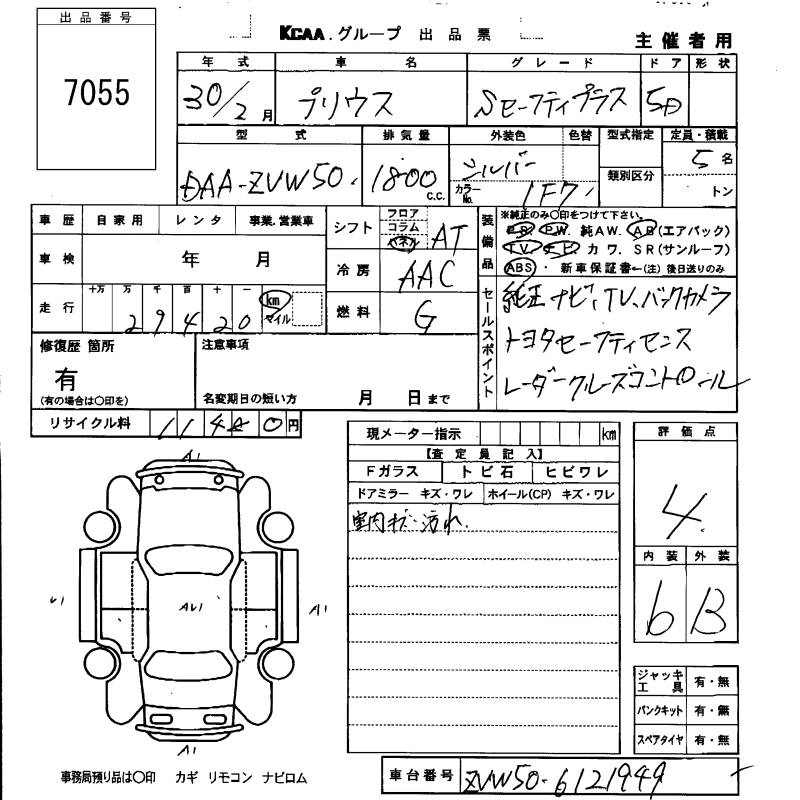 出品番号
7055
KCAA.グループ 出品票
主催者用
年式 車名 グレード ドア 形状
30/2月 プリウス Sセーフティプラス 5D
型式 排気量 外装色 色替 型式指定 定員・積載
DAA-ZVW50 1800 C.C. シルバー カラーNo. 1F7 類別区分 5名 トン
車歴 自家用 レンタ 事業.営業車
シフト フロア コラム パネル AT
装備品 ※純正のみ〇印をつけて下さい。
P.S. P.W. 純AW. AB(エアバック)
TV. ナビ. カワ. SR(サンルーフ)
ABS・ 新車保証書←(注)後日送りのみ
車検 年 月
冷房 AAC
走行 十万 万 千 百 十 一 29420 km マイル
燃料 G
セールスポイント
純正ナビ、TV、バックカメラ
トヨタセーフティセンス
レーダークルーズコントロール
修復歴 箇所
有
(有の場合は〇印を)
注意事項
名変期日の短い方 月 日まで
リサイクル料 11440円
現メーター指示 km
【査定員記入】
Fガラス トビ石 ヒビワレ
ドアミラー キズ・ワレ ホイール(CP) キズ・ワレ
室内キズ・汚れ
評価点
4
内装 外装
b B
A1
U1 AU1 A1
A1
ジャッキ工具 有・無
パンクキット 有・無
スペアタイヤ 有・無
事務局預り品は〇印 カギ リモコン ナビロム
車台番号 ZVW50-6121949